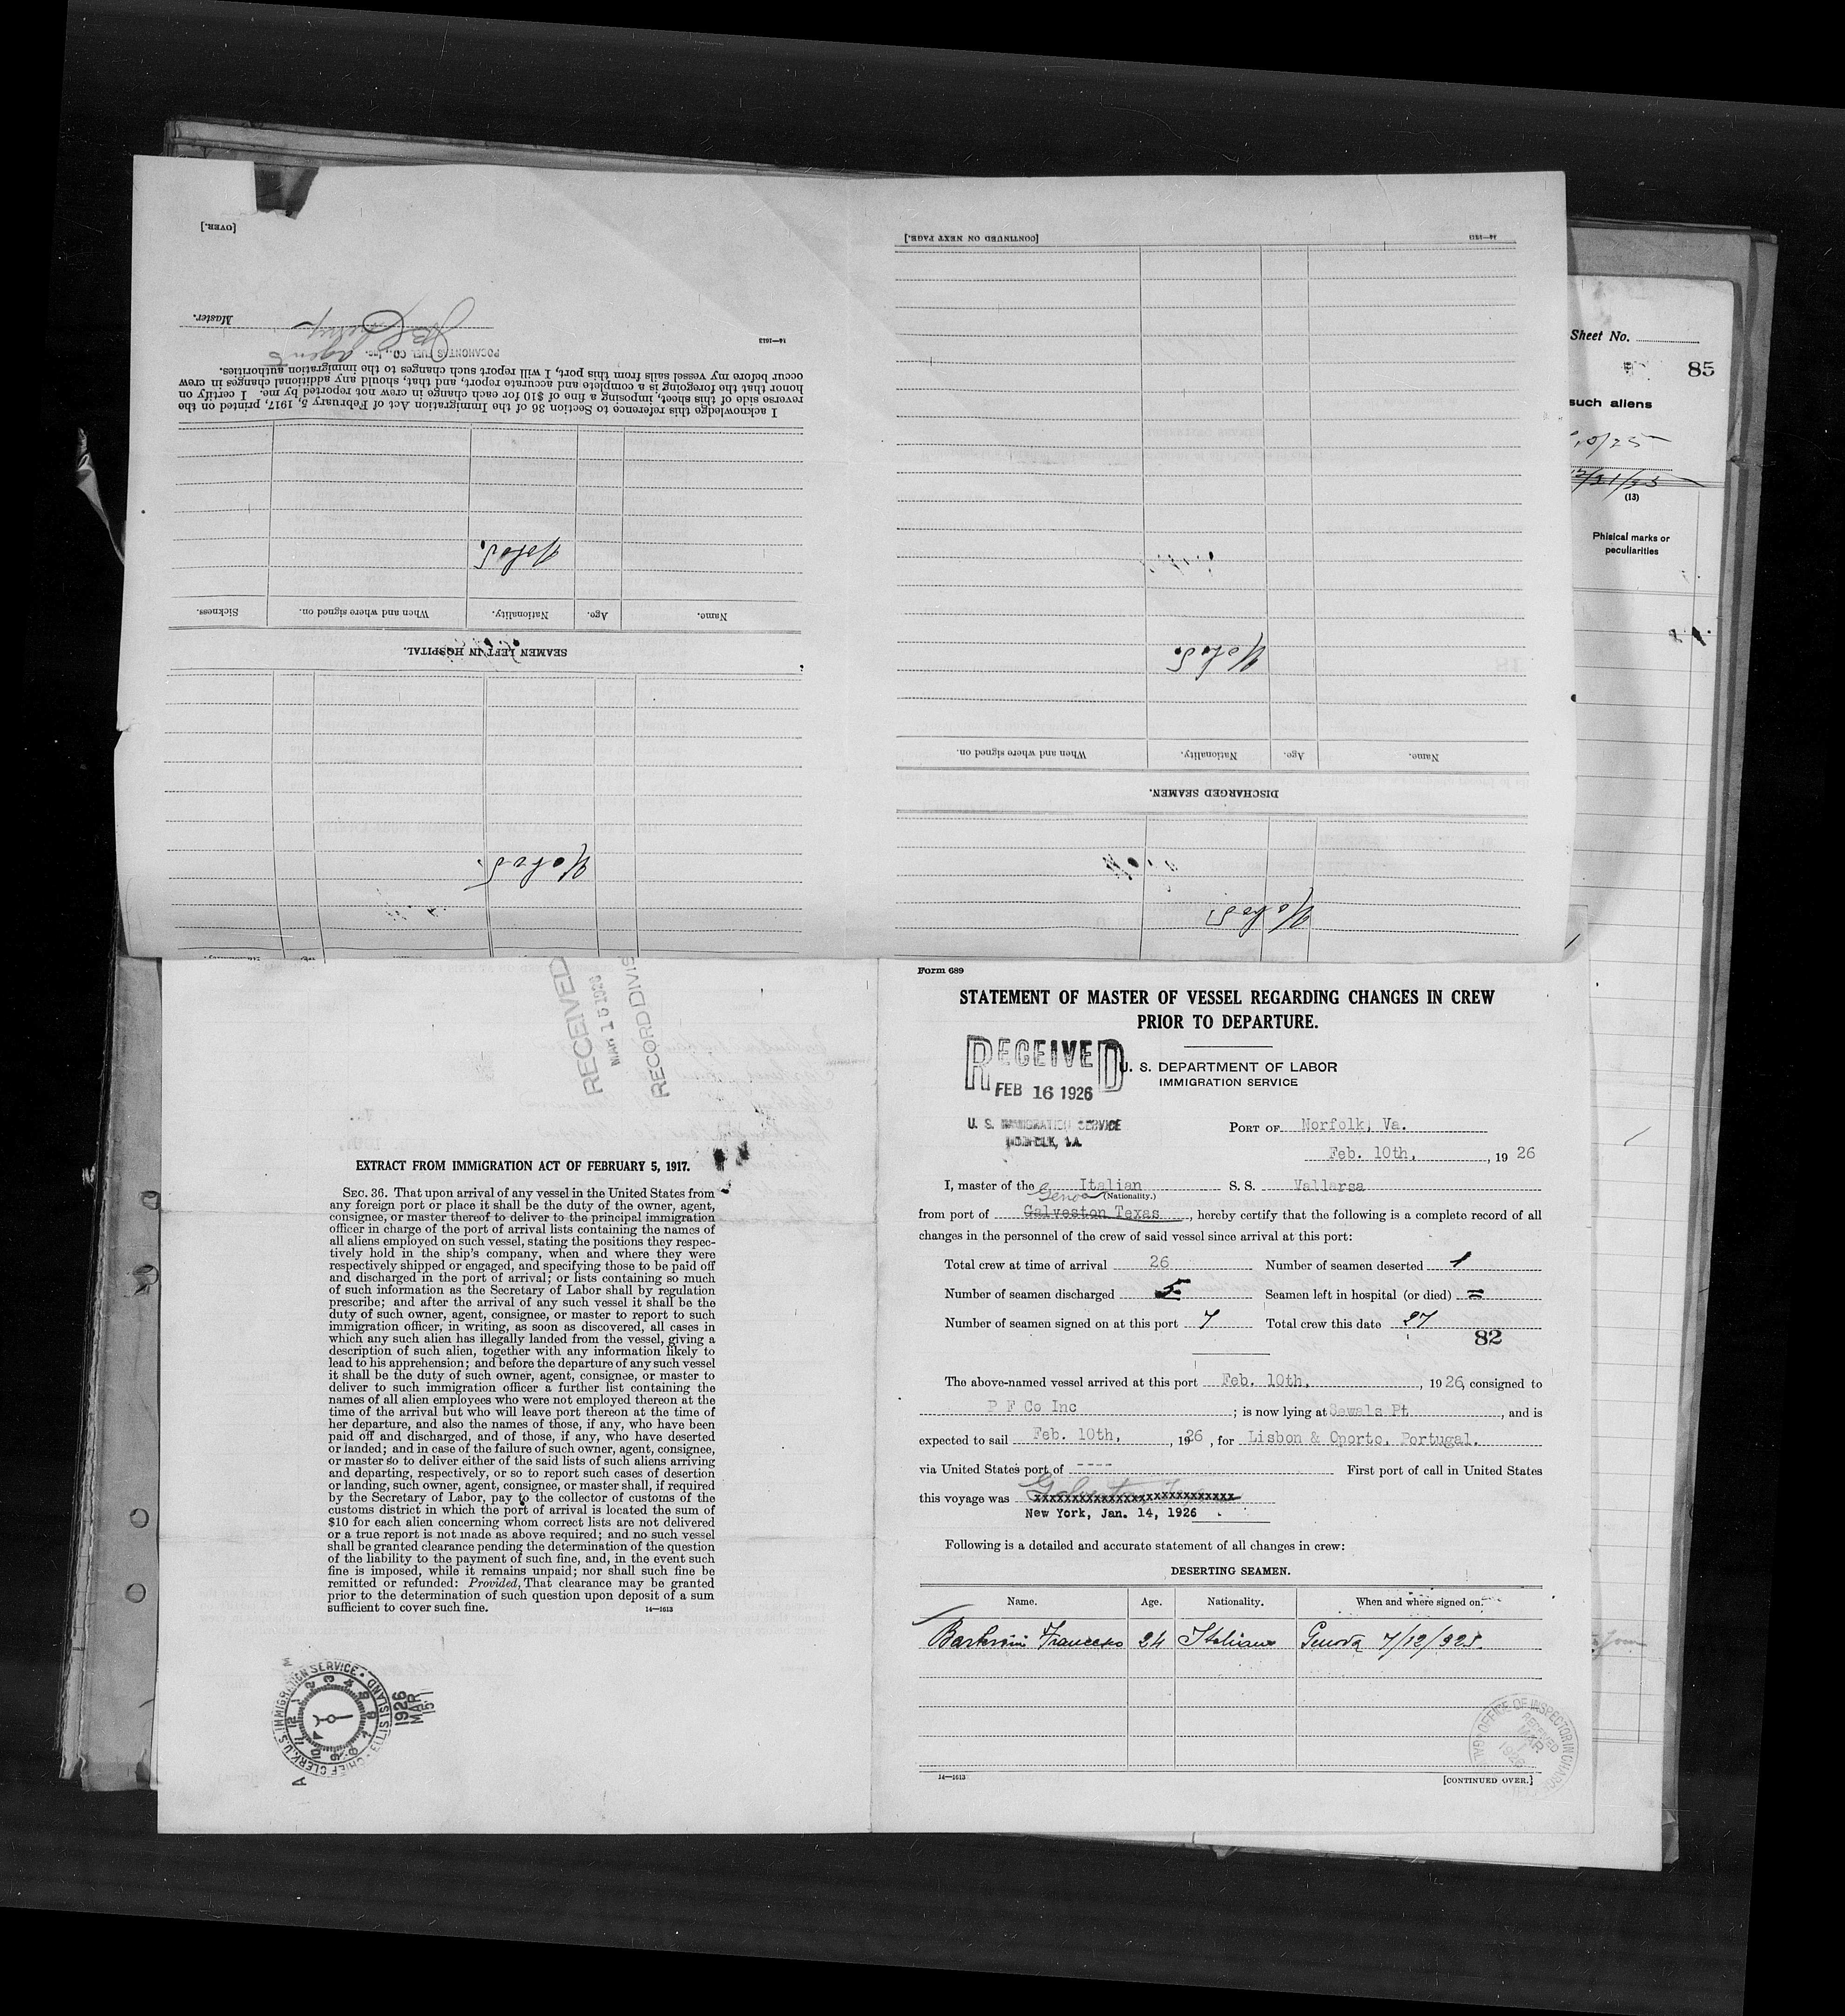 [OVER.]
Master.
POCAHONTAS FUEL CO., Inc.
agents
14—1613
I acknowledge this reference to Section 36 of the Immigration Act of February 5, 1917, printed on the
reverse side of this sheet, imposing a fine of $10 for each change in crew not reported by me. I certify on
honor that the foregoing is a complete and accurate report, and that, should any additional changes in crew
occur before my vessel sails from this port, I will report such changes to the immigration authorities.
Name. Age. Nationality. When and where signed on. Sickness.
SEAMEN LEFT IN HOSPITAL.
[CONTINUED ON NEXT PAGE.]
14—1613
Name. Age. Nationality. When and where signed on.
DISCHARGED SEAMEN.
Sheet No.
85
such aliens
(13)
Phisical marks or
peculiarities
RECEIVED
MAR 15 1926
RECORD DIVIS
EXTRACT FROM IMMIGRATION ACT OF FEBRUARY 5, 1917.
SEC. 36. That upon arrival of any vessel in the United States from
any foreign port or place it shall be the duty of the owner, agent,
consignee, or master thereof to deliver to the principal immigration
officer in charge of the port of arrival lists containing the names of
all aliens employed on such vessel, stating the positions they respec-
tively hold in the ship's company, when and where they were
respectively shipped or engaged, and specifying those to be paid off
and discharged in the port of arrival; or lists containing so much
of such information as the Secretary of Labor shall by regulation
prescribe; and after the arrival of any such vessel it shall be the
duty of such owner, agent, consignee, or master to report to such
immigration officer, in writing, as soon as discovered, all cases in
which any such alien has illegally landed from the vessel, giving a
description of such alien, together with any information likely to
lead to his apprehension; and before the departure of any such vessel
it shall be the duty of such owner, agent, consignee, or master to
deliver to such immigration officer a further list containing the
names of all alien employees who were not employed thereon at the
time of the arrival but who will leave port thereon at the time of
her departure, and also the names of those, if any, who have been
paid off and discharged, and of those, if any, who have deserted
or landed; and in case of the failure of such owner, agent, consignee,
or master so to deliver either of the said lists of such aliens arriving
and departing, respectively, or so to report such cases of desertion
or landing, such owner, agent, consignee, or master shall, if required
by the Secretary of Labor, pay to the collector of customs of the
customs district in which the port of arrival is located the sum of
$10 for each alien concerning whom correct lists are not delivered
or a true report is not made as above required; and no such vessel
shall be granted clearance pending the determination of the question
of the liability to the payment of such fine, and, in the event such
fine is imposed, while it remains unpaid; nor shall such fine be
remitted or refunded: Provided, That clearance may be granted
prior to the determination of such question upon deposit of a sum
sufficient to cover such fine.
14—1613
CHIEF CLERK, U.S. IMMIGRATION SERVICE • ELLIS ISLAND
1926
MAR
15
Form 689
STATEMENT OF MASTER OF VESSEL REGARDING CHANGES IN CREW
PRIOR TO DEPARTURE.
RECEIVED
FEB 16 1926
U. S. IMMIGRATION SERVICE
NORFOLK, VA.
U. S. DEPARTMENT OF LABOR
IMMIGRATION SERVICE
PORT OF Norfolk, Va.
Feb. 10th, , 19 26
I, master of the Italian S. S. Vallarsa
Genoa (Nationality.)
from port of Galveston Texas , hereby certify that the following is a complete record of all
changes in the personnel of the crew of said vessel since arrival at this port:
Total crew at time of arrival 26 Number of seamen deserted 1
Number of seamen discharged 5 Seamen left in hospital (or died) =
Number of seamen signed on at this port 7 Total crew this date 27
82
The above-named vessel arrived at this port Feb. 10th, , 19 26, consigned to
P F Co Inc ; is now lying at Sewals Pt , and is
expected to sail Feb. 10th, , 1926 , for Lisbon & Oporto, Portugal.
via United States port of ---- First port of call in United States
this voyage was Galveston xxxxxxxxxxxxxxxxxxxxxxxxxxx
New York, Jan. 14, 1926
Following is a detailed and accurate statement of all changes in crew:
DESERTING SEAMEN.
Name. Age. Nationality. When and where signed on.
Francesco 24 Italiano Genova 7/12/925.
14—1613
[CONTINUED OVER.]
OFFICE OF INSPECTOR IN CHARGE
RECEIVED
MAR
1926